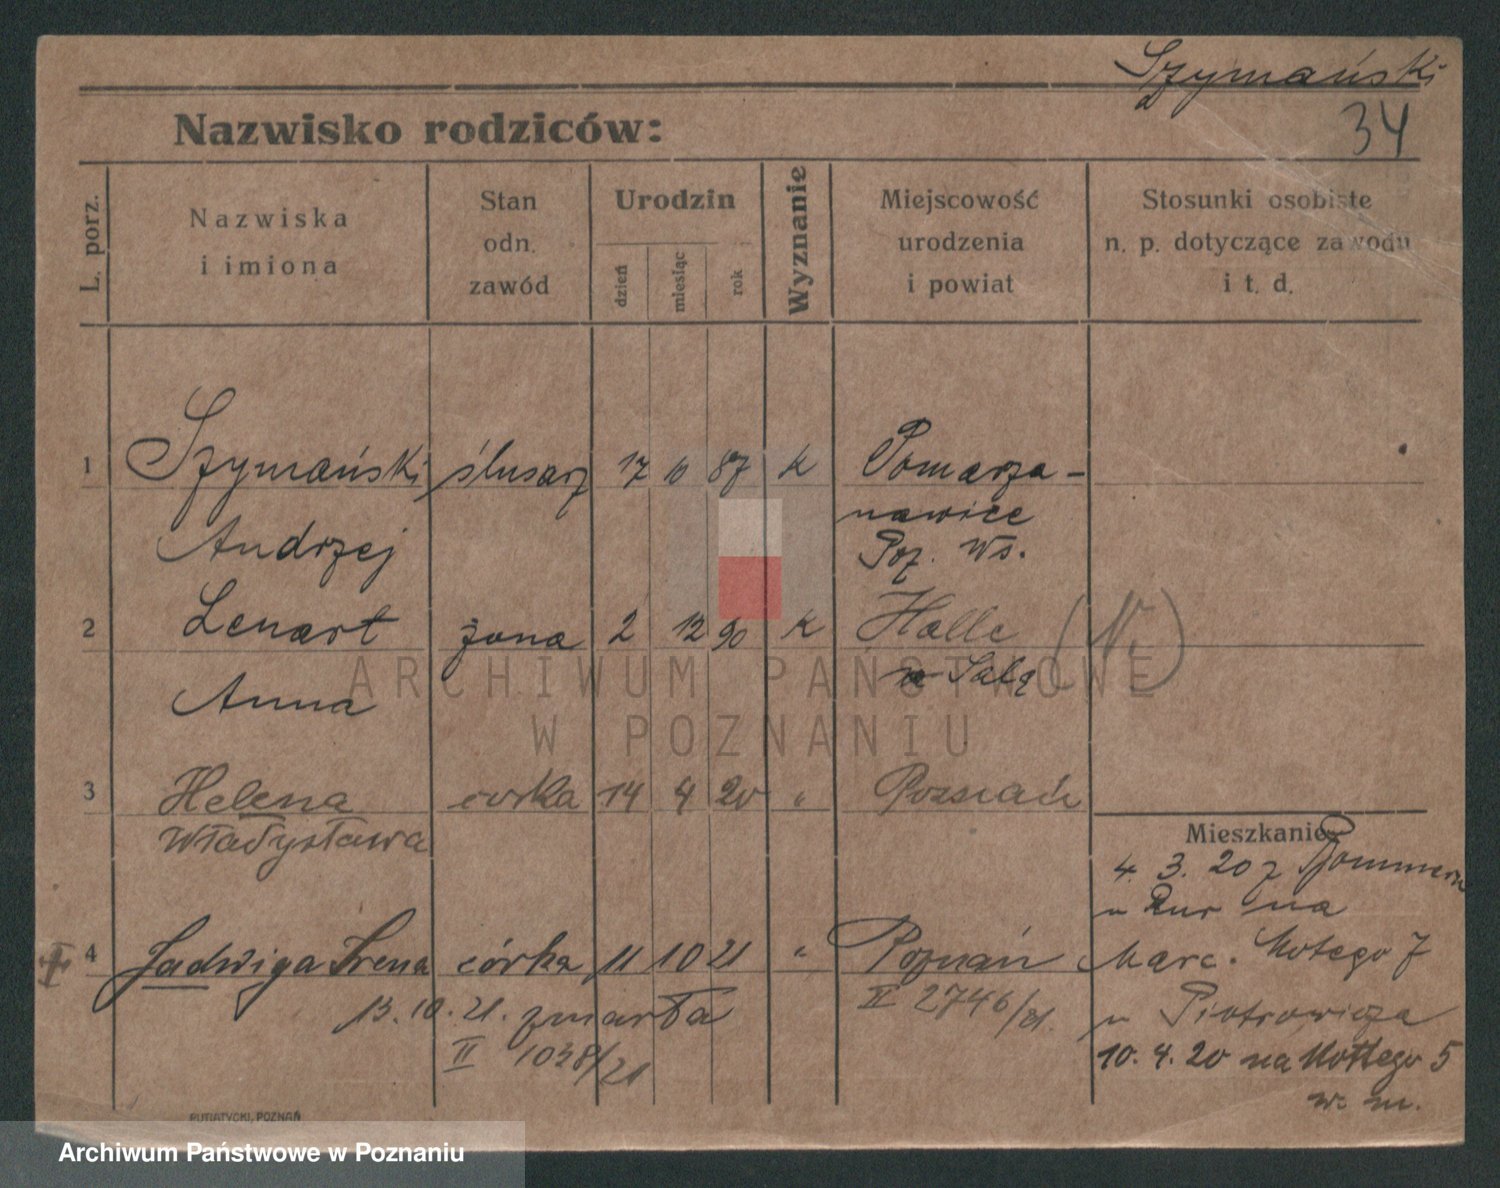 Szymański
34
Nazwisko rodziców:
L. porz.
Nazwiska
i imiona
Stan
odn.
zawód
Urodzin
dzień
miesiąc
rok
Wyznanie
Miejscowość
urodzenia
i powiat
Stosunki osobiste
n. p. dotyczące zawodu
i t. d.
1 Szymański ślusarz 17 10 87 k Pomarza-
nowice
Andrzej Poz. Ws.
2 Lenart żona 2 12 90 k Halle (N.)
Anna n Salą
3 Helena córka 14 4 20 „ Poznań
Władysława
Mieszkanie
4. 3. 20 z
u na
4 Jadwiga Irena córka 11 10 21 „ Poznań
Marc. Motego 7
13. 10. 21. zmarła II 2746/21.
u Piotrowicza
II 1038/21
10. 4. 20 na Mottego 5
w. m.
PUTIATYCKI, POZNAŃ
ARCHIWUM PAŃSTWOWE
W POZNANIU
Archiwum Państwowe w Poznaniu